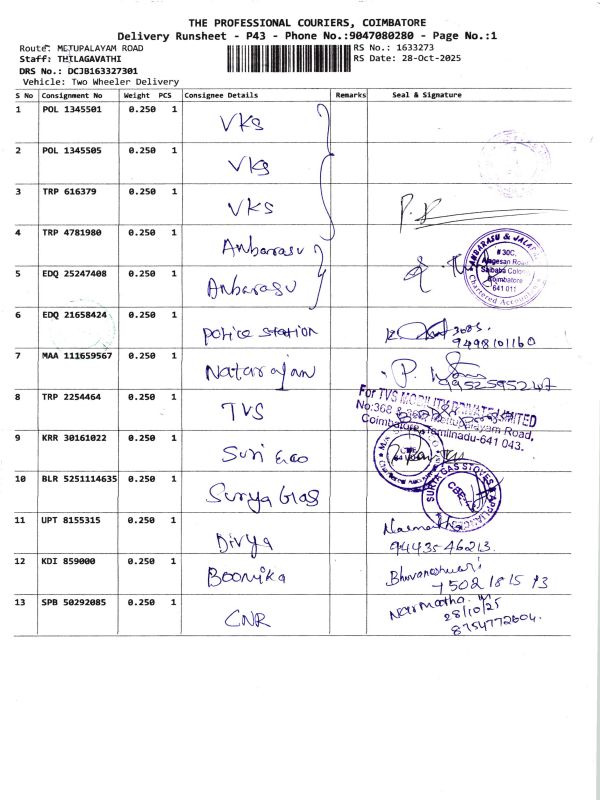 THE PROFESSIONAL COURIERS, COIMBATORE
Delivery Runsheet - P43 - Phone No.:9047080280 - Page No.:1
Route: METUPALAYAM ROAD RS No.: 1633273
Staff: THILAGAVATHI RS Date: 28-Oct-2025
DRS No.: DCJB163327301
Vehicle: Two Wheeler Delivery
S No Consignment No Weight PCS Consignee Details Remarks Seal & Signature
1 POL 1345501 0.250 1 VKS
2 POL 1345505 0.250 1 VKS
3 TRP 616379 0.250 1 VKS
4 TRP 4781980 0.250 1 Anbarasu
ANBARASU & JALA
# 30C,
Alagesan Road
Saibaba Colony
Coimbatore
641 011
Chartered Accountants
5 EDQ 25247408 0.250 1 Anbarasu
6 EDQ 21658424 0.250 1 Police station
9498101160
7 MAA 111659567 0.250 1 Natarajan
9952595247
8 TRP 2254464 0.250 1 TVS
For TVS MOBILITY PRIVATE LIMITED
No:368 & 369, Mettupalayam Road,
Coimbatore, Tamilnadu-641 043.
9 KRR 30161022 0.250 1 Suri &co
10 BLR 5251114635 0.250 1 Surya Gas
SURYA GAS STOVES & APPLIANCES
CBE
11 UPT 8155315 0.250 1 Divya
9443546213
12 KDI 859000 0.250 1 Boomika
Bhuvaneshwari
13 SPB 50292085 0.250 1 CNR
Narmatha
28/10/25
8754772604.